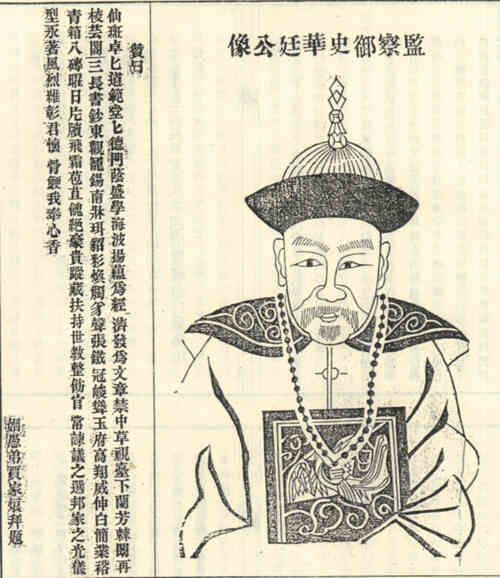 監察御史華廷公像
贊曰
仙斑卓匕道範堂匕德門蔭盛學海波揚蘊爲經濟發爲文章禁中草視臺下蘭芳棘闈再
棱芸閣三長書鈔東觀寵錫南牀珥貂形煥觸豸聲張鐵冠峻聳玉府高翔威伸白簡業裕
青箱八磚暇日片牘飛霜苞苴愧絕豪貴蹤藏扶持世敎整飭官常諫議之選邦家之光儀
型永著風烈雅彰君 骨鯁我奉心香
姻愚弟賈家 拜題